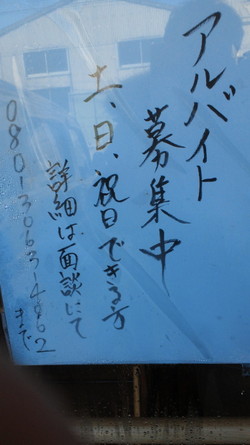 アルバイト
募集中
土、日、祝日できる方
詳細は面談にて
080-3063-4862
まで